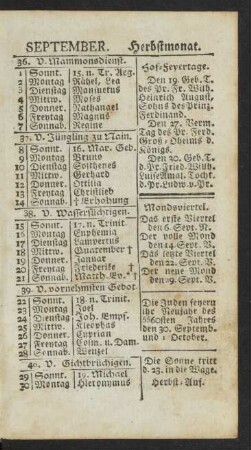 SEPTEMBER. Herbstmonat.
36. V. Mammonsdienst.
1 Sonnt. 15. n. Tr. Aeg.
2 Montag Rahel, Lea
3 Dienstag Mansuetus
4 Mittw. Moses
5 Donnet. Nathanael
6 Freytag Magnus
7 Sonnab. Regine
37. V. Jüngling zu Nain.
8 Sonnt. 16. Mar. Geb.
9 Montag Bruno
10 Dienstag Sostheres
11 Mittw. Gerhard
12 Donner. Ottilia
13 Freytag Christlieb
14 Sonnab. † Erhöhung
38. V. Wassersüchtigen.
15 Sonnt. 17. n. Trinit.
16 Montag Euphemia
17 Dienstag Lampertus
18 Mittw. Quatember †
19 Donner. Januar
20 Freytag Friederike †
21 Sonnab. Matth. Ev. †
39. V. vornehmsten Gebot.
22 Sonnt. 18. n. Trinit.
23 Montag Joel
24 Dienstag Joh. Empf.
25 Mittw. Kleophas
26 Donner. Cyprian
27 Freytag Cosm. u. Dam.
28 Sonnab. Wenzel
40. V. Gichtbrüchigen.
29 Sonnt. 19. Michael
30 Montag Hieronymus
Hof-Feyertage.
Den 19. Geb. T.
des Pr. Fr. Wilh.
Heinrich August,
Sohns des Prinz.
Ferdinand.
Den 27. Verm.
Tag des Pr. Ferd.
Groß-Oheims d.
Königs.
Den 20. Geb. T.
d. Pr. Fried. Wilh.
Luise Amal. Tocht.
d. Pr. Ludw. v. Pr.
Mondsviertel.
Das erste Viertel
den 6. Sept. V.
Der volle Mond
den 14. Sept. V.
Das letzte Viertel
den 22. Sept. V.
Der neue Mond
den 29. Sept. V.
Die Juden feyern
ihr Neujahr des
5560sten Jahrs
den 30. Septemb.
und 1. October.
Die Sonne tritt
d. 23. in die Wage.
Herbst-Anf.